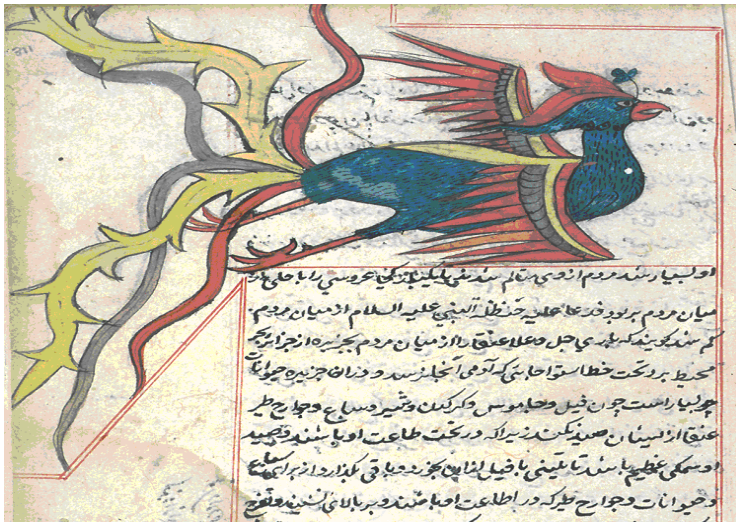 او بسیار شد مردم از وی متالم شدند عروسی را با حلی از
میان مردم بربود فدعا علیه حنظلة النبي علیه السلام از میان مردم
کم شد کویند که باري جل وعلا عنقا را از میان مردم بجزیره از جزایر بحر
محیط برد تحت خط استوا جایی که آدمی آنجا نرسد و در آن جزیره حیوانات
بسیار است چون فیل و جاموس و کرکدن و شیر و سباع و جوارح طیر
عنقا از ایشان صید نکند زیرا که در تحت طاعت او باشند و صید
او سمکی عظیم باشد یا تنینی یا فیل از این بخورد و باقی بکذارد از برای سباع
و حیوانات و جوارح طیر که در اطاعت او باشند و بر بالای نشیند و تفرج